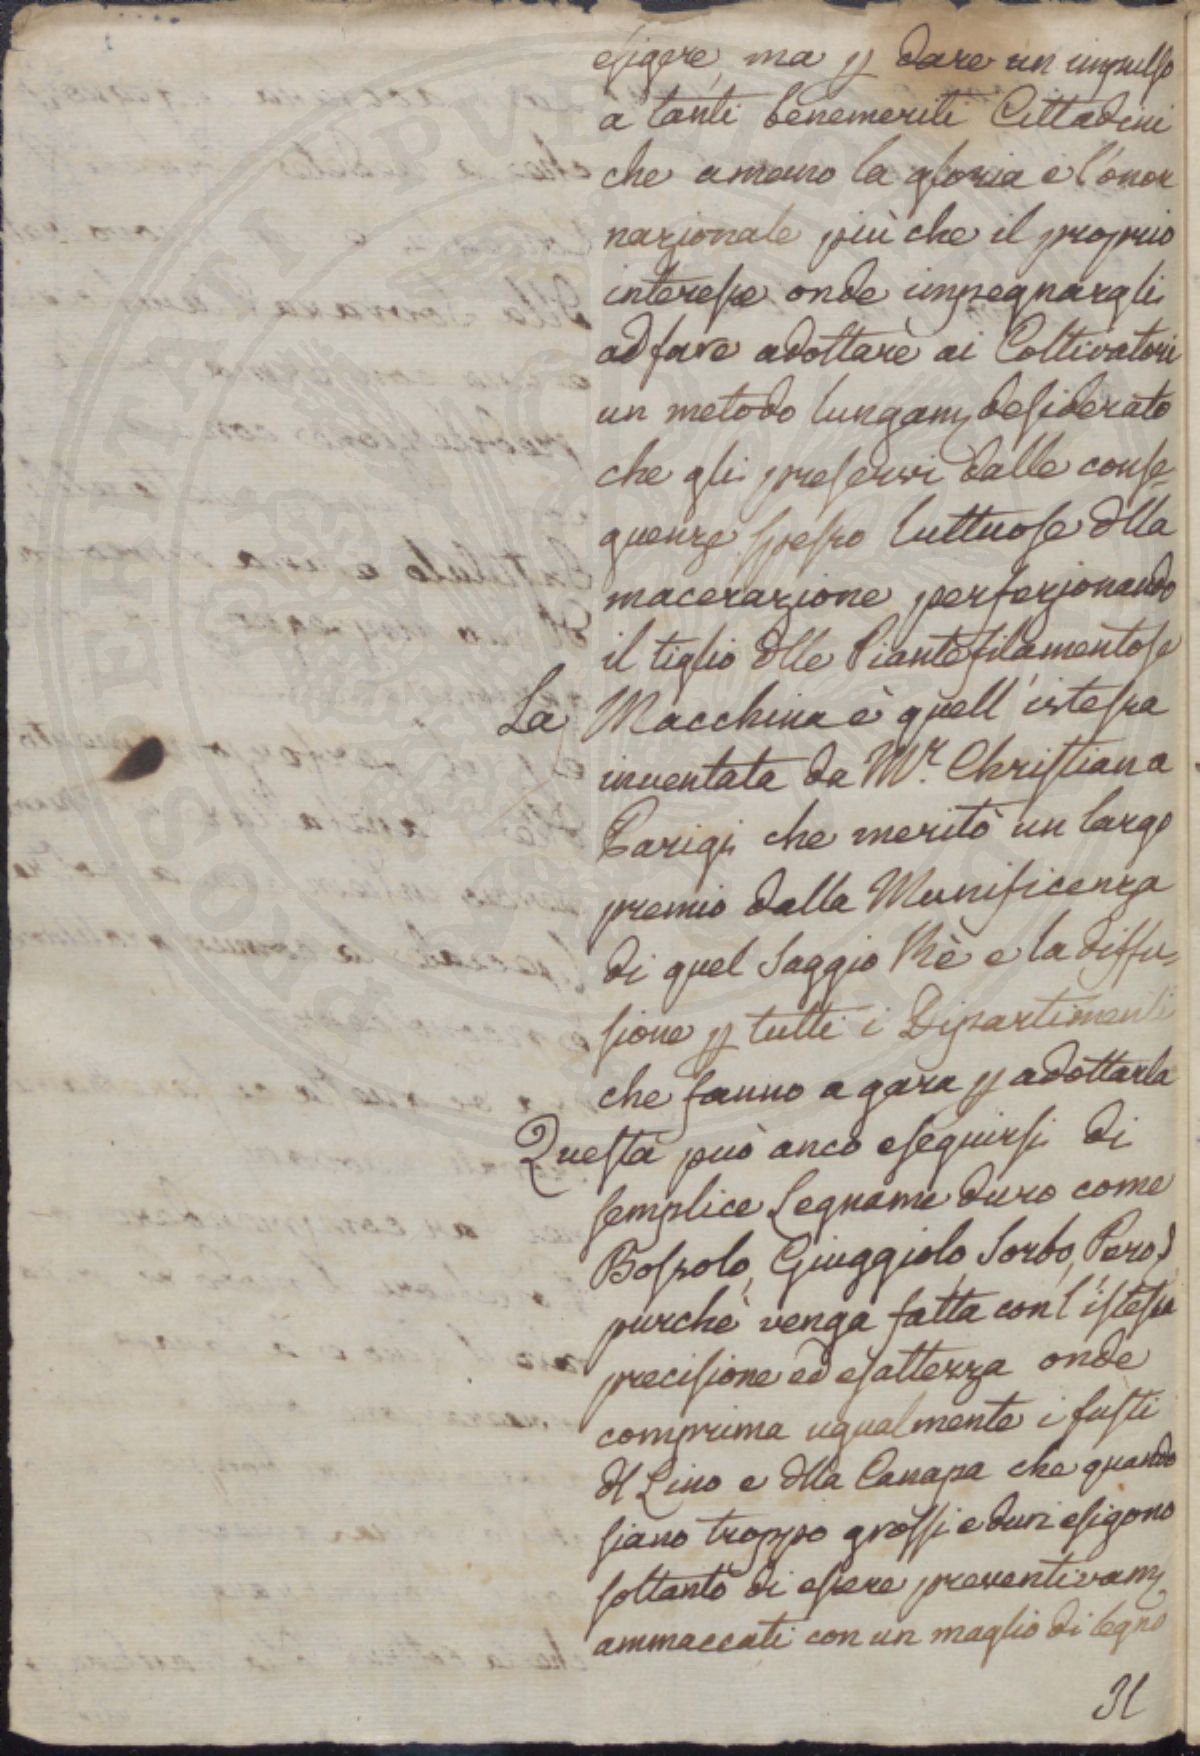 esigere, ma p dare un impulso
a tanti benemeriti Cittadini
che amano la gloria e l'onor
nazionale più che il proprio
interesse onde impegnargli
ad fare adottare ai Coltivatori
un metodo lungam desiderato
che gli preservi dalle conse=
guenze spesso luttuose dlla
macerazione, perfezionando
il tiglio dlle Piante filamentose
La Macchina è quell' istessa
inventata da Mr. Christian a
Parigi che meritò un largo
premio dalla Munificenza
di quel Saggio Rè e la diffu=
sione p tutti i Dipartimenti
che fanno a gara p adottarla
Questa può anco eseguirsi di
semplice Legname duro come
Bossolo, Giuggiolo, Sorbo, Pero,
purchè venga fatta con l'istessa
precisione ed esattezza onde
comprima ugualmente i fusti
dl Lino e dlla Canapa che quando
siano troppo grossi e duri esigono
soltanto di essere preventivam
ammaccati con un maglio di legno
PROSPERITATI PVBLICAE